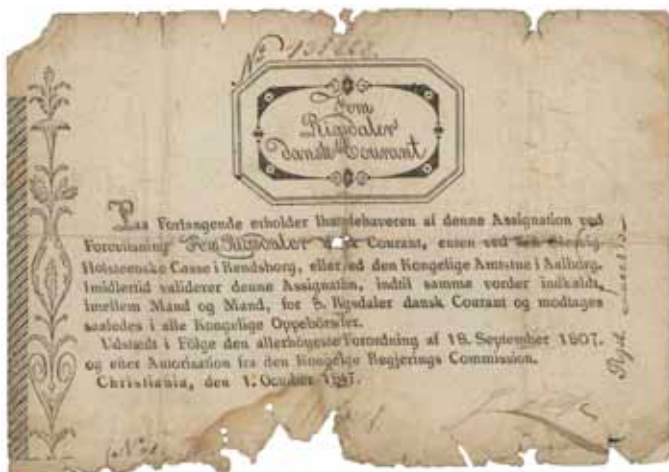 No
Fem
Rigsdaler
dansk Courant
Paa Forlangende erholder Ihændehaveren af denne Assignation ved
Forevisning Fem Rigsdaler Courant, enten ved
Holsteenske Casse i Rendsborg, eller ved den Kongelige Amtstue i Aalborg.
Imidlertid validerer denne Assignation, indtil samme vorder indkaldt,
imellem Mand og Mand, for 5 Rigsdaler dansk Courant og modtages
saaledes i alle Kongelige Oppebörsler.
Udstædt i Fölge den allerhöieste Forordning af 18. September 1807.
og efter Autorisation fra den Kongelige Regjerings Commission.
Christiania, den 1. October 1807.